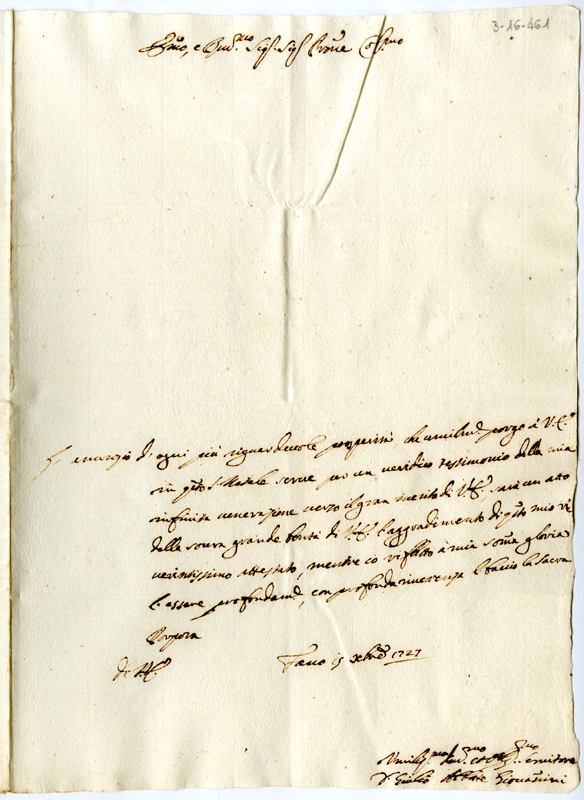 3-16-461
Emo, e Rmo Sig.r Sig.r Prone Colmo
annunzio di ogni più riguardevole prosperità che umilmte. porgo à V.E.
in qsto S. Natale serve per un veridico testimonio della mia
infinita venerazione verso il gran merito di V.E. sarà un atto
della sovra grande bontà di V.E. l'aggradimento di qsto mio
attestato, mentre io à mia soma gloria
l'essere profondamte., con profonda riverenza le bacio la Sacra
Porpora
di V.E.
Fano 15 Xbre 1727
Umiliss.mo Dev.mo et Obl.mo Servitore
Giulio Abbate Giovannini